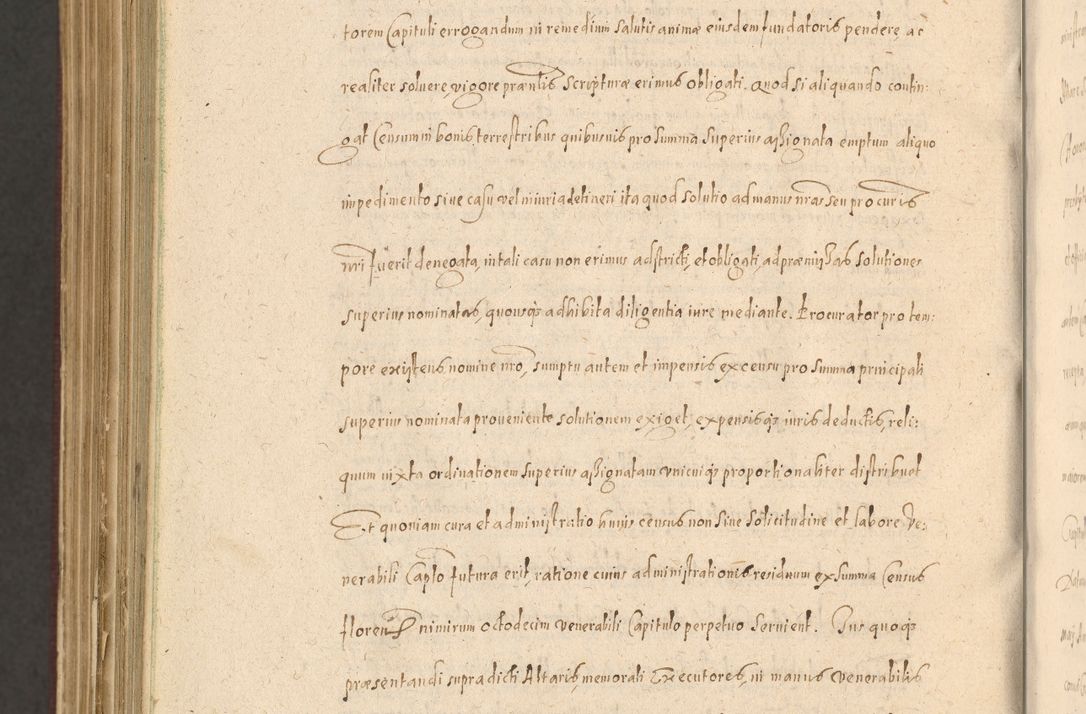 torem Capituli errogandum in remedium salutis animæ eiusdem fundatoris pendere, ac
realiter soluere, vigore præntis Scripturæ erimus obligati. Quod si aliquando contin:
gat Censum in bonis terrestribus quibusuis pro summa superius assignata emptum aliquo
impedimento siue casu vel iniuria detineri ita quod solutio ad manus nras seu procuris
nri fuerit denegata, in tali casu non erimus adstricti, et obligati, ad præmissas solutiones
superius nominatas, quousqs adhibita diligentia iure mediante. Procurator pro tem:
pore existens nomine nro, sumptu autem et impensis ex censu pro summa principali
superius nominata proueniente solutionem exiget, expensisqs iuris deductis, reli:
quum iuxta ordinationem superius assignatam vnicuiqs proportionaliter distribuet
Et quoniam cura et administratio huius census non sine solicitudine et labore Ve:
nerabili Caplo futura erit, ratione cuius administrationis residuum ex summa Census
floren nimirum octodecim venerabili Capitulo perpetuo seruient. Ius quoqs
præsentandi supradicti Altaris, memorati Executores, in manus Venerabilis